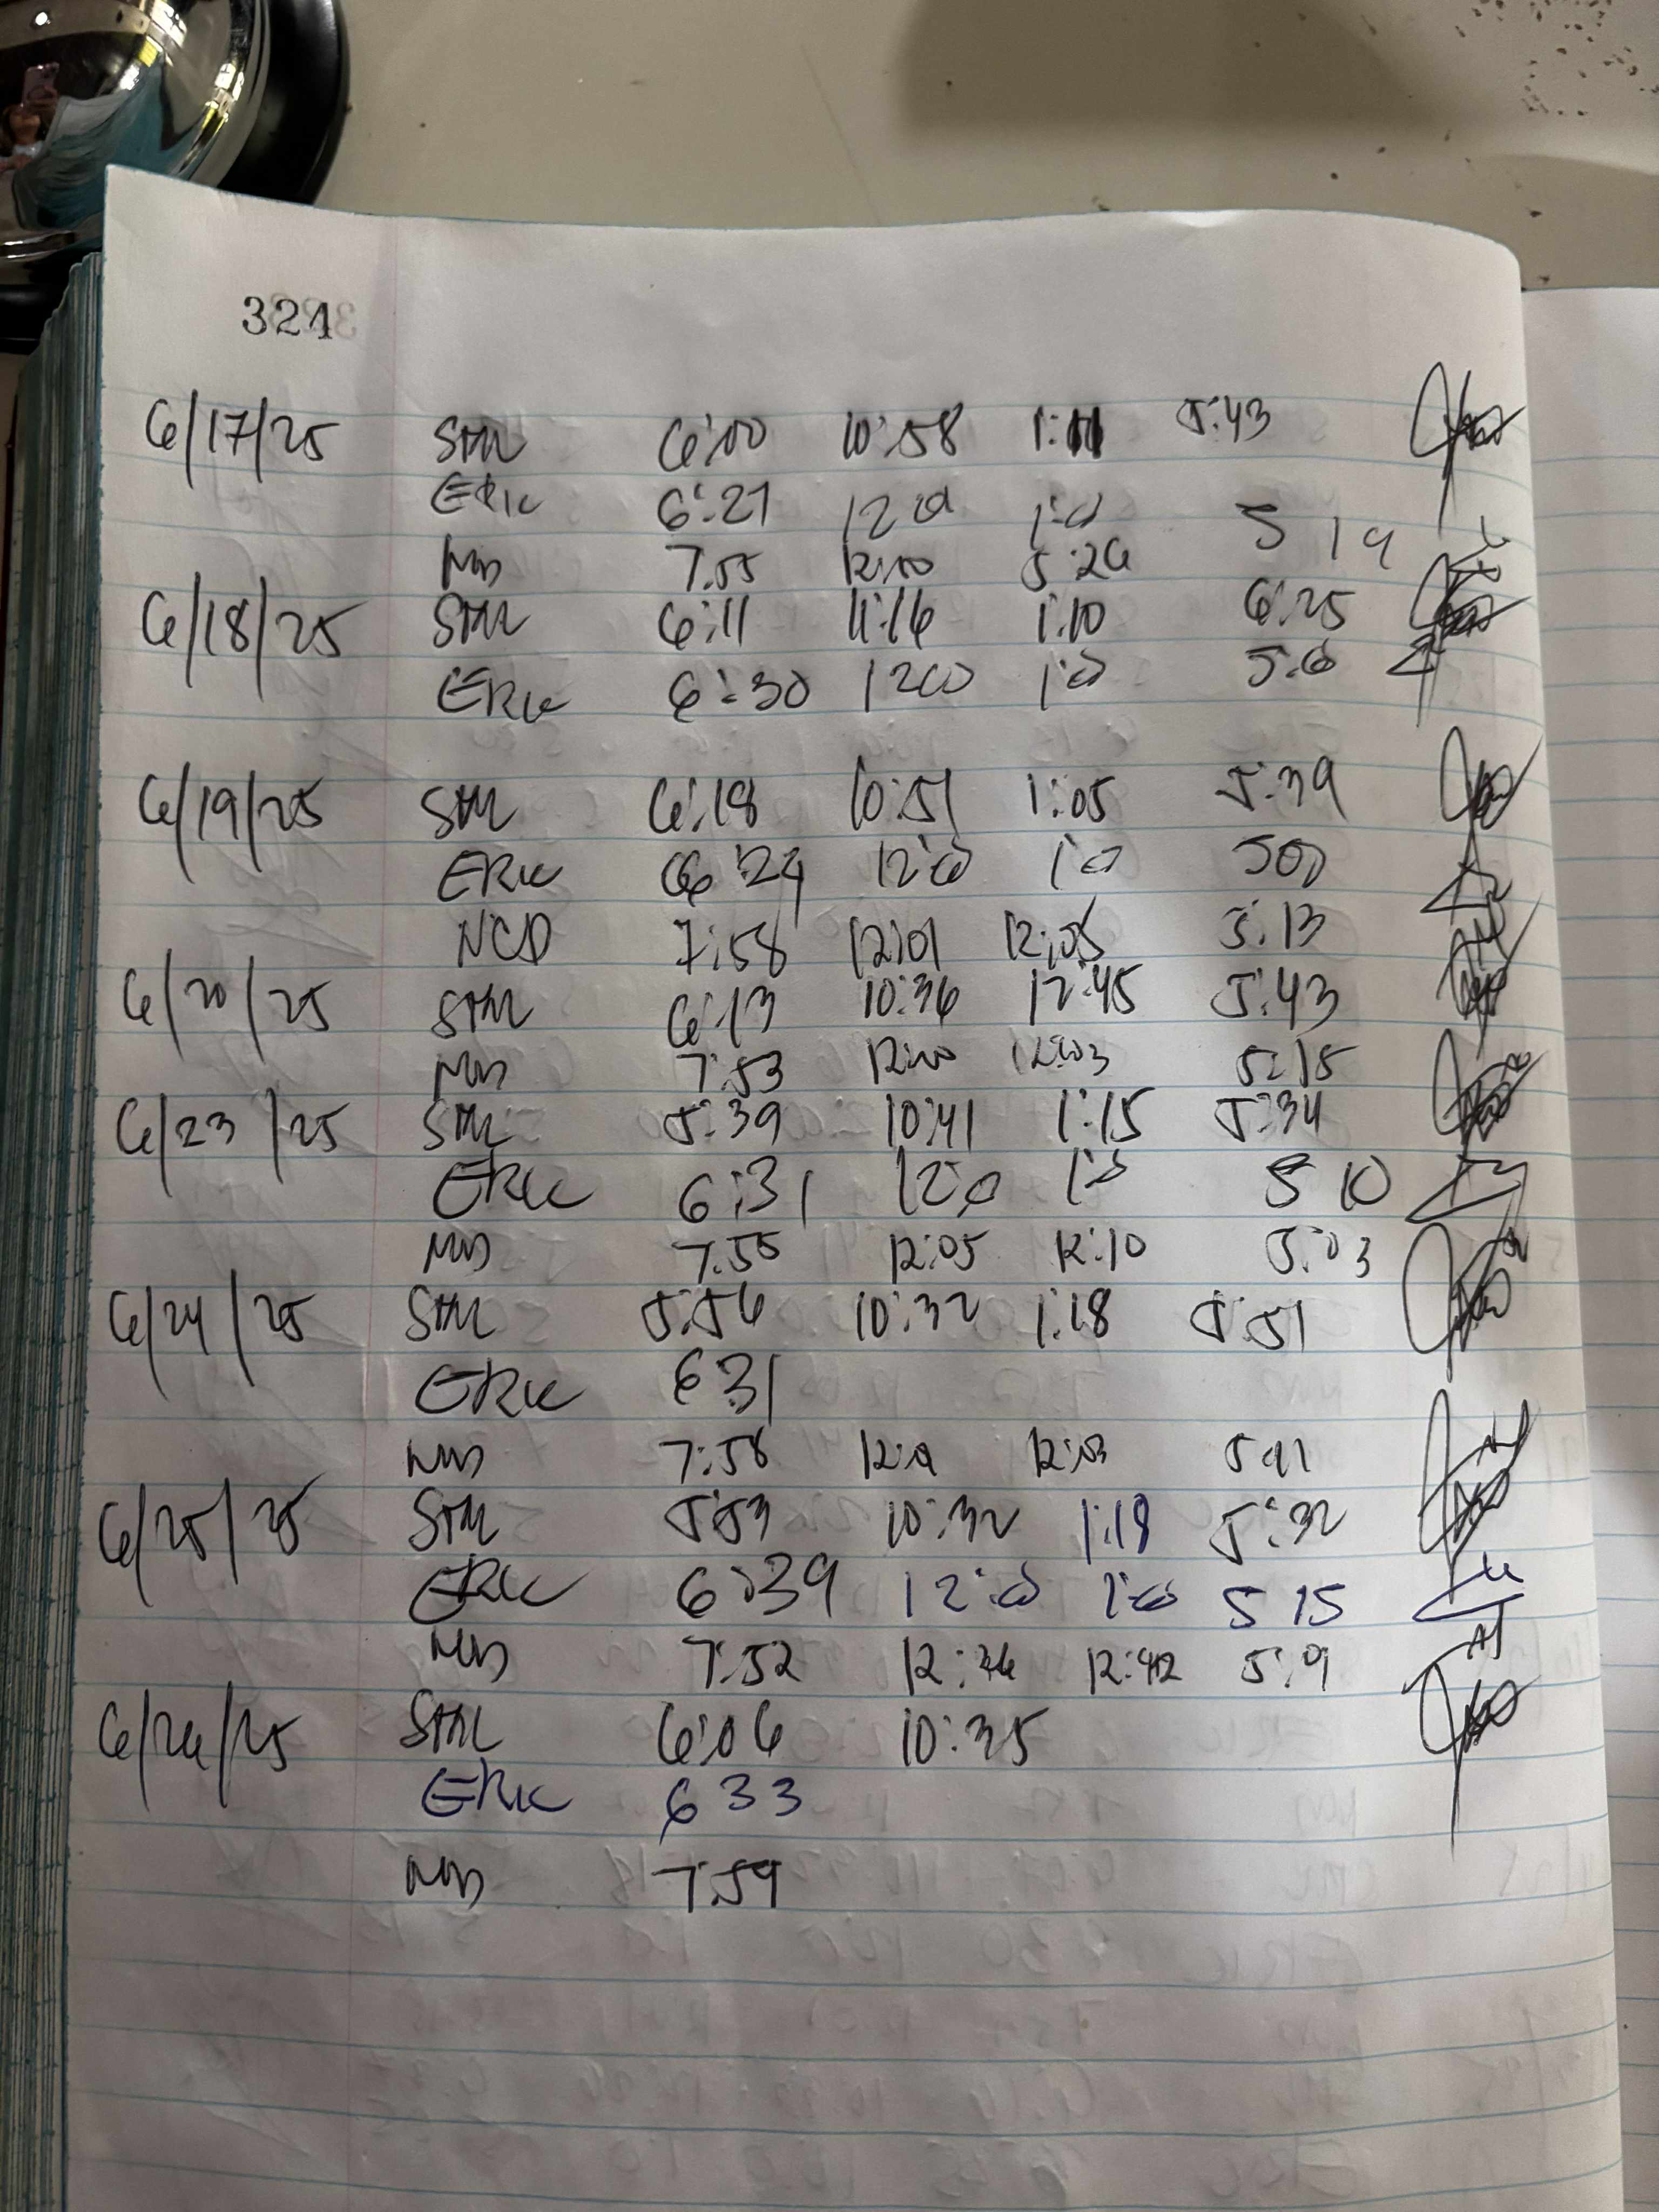 321
6/17/25 STM 6:00 10:58 1:11 5:43
ERIC 6:27 12 1: 5 19
7:55 12:00 5:26
6/18/25 STM 6:11 11:16 1:10 6:25
ERIC 6:30 1200 1:
6/19/25 STM 6:18 10:51 1:05 5:39
ERIC 6:24 12:00 1: 500
NCD 7:58 12:01 12:05 5:13
6/20/25 STM 6:13 10:36 12:45 5:43
7:53 12:00 12:03 5:15
6/23/25 STM 5:39 10:41 1:15 5:34
ERIC 6:31 12:0 1: 5 10
7:55 12:05 12:10 5:03
6/24/25 STM 5:56 10:32 1:18 5:51
ERIC 631
7:58 12: 12:03
6/25/25 STM 5:53 10:32 1:18 5:32
ERIC 6:39 12:00 1:00 5 15
7:52 12:36 12:42 5:9
6/26/25 STM 6:06 10:35
ERIC 6 33
7:59